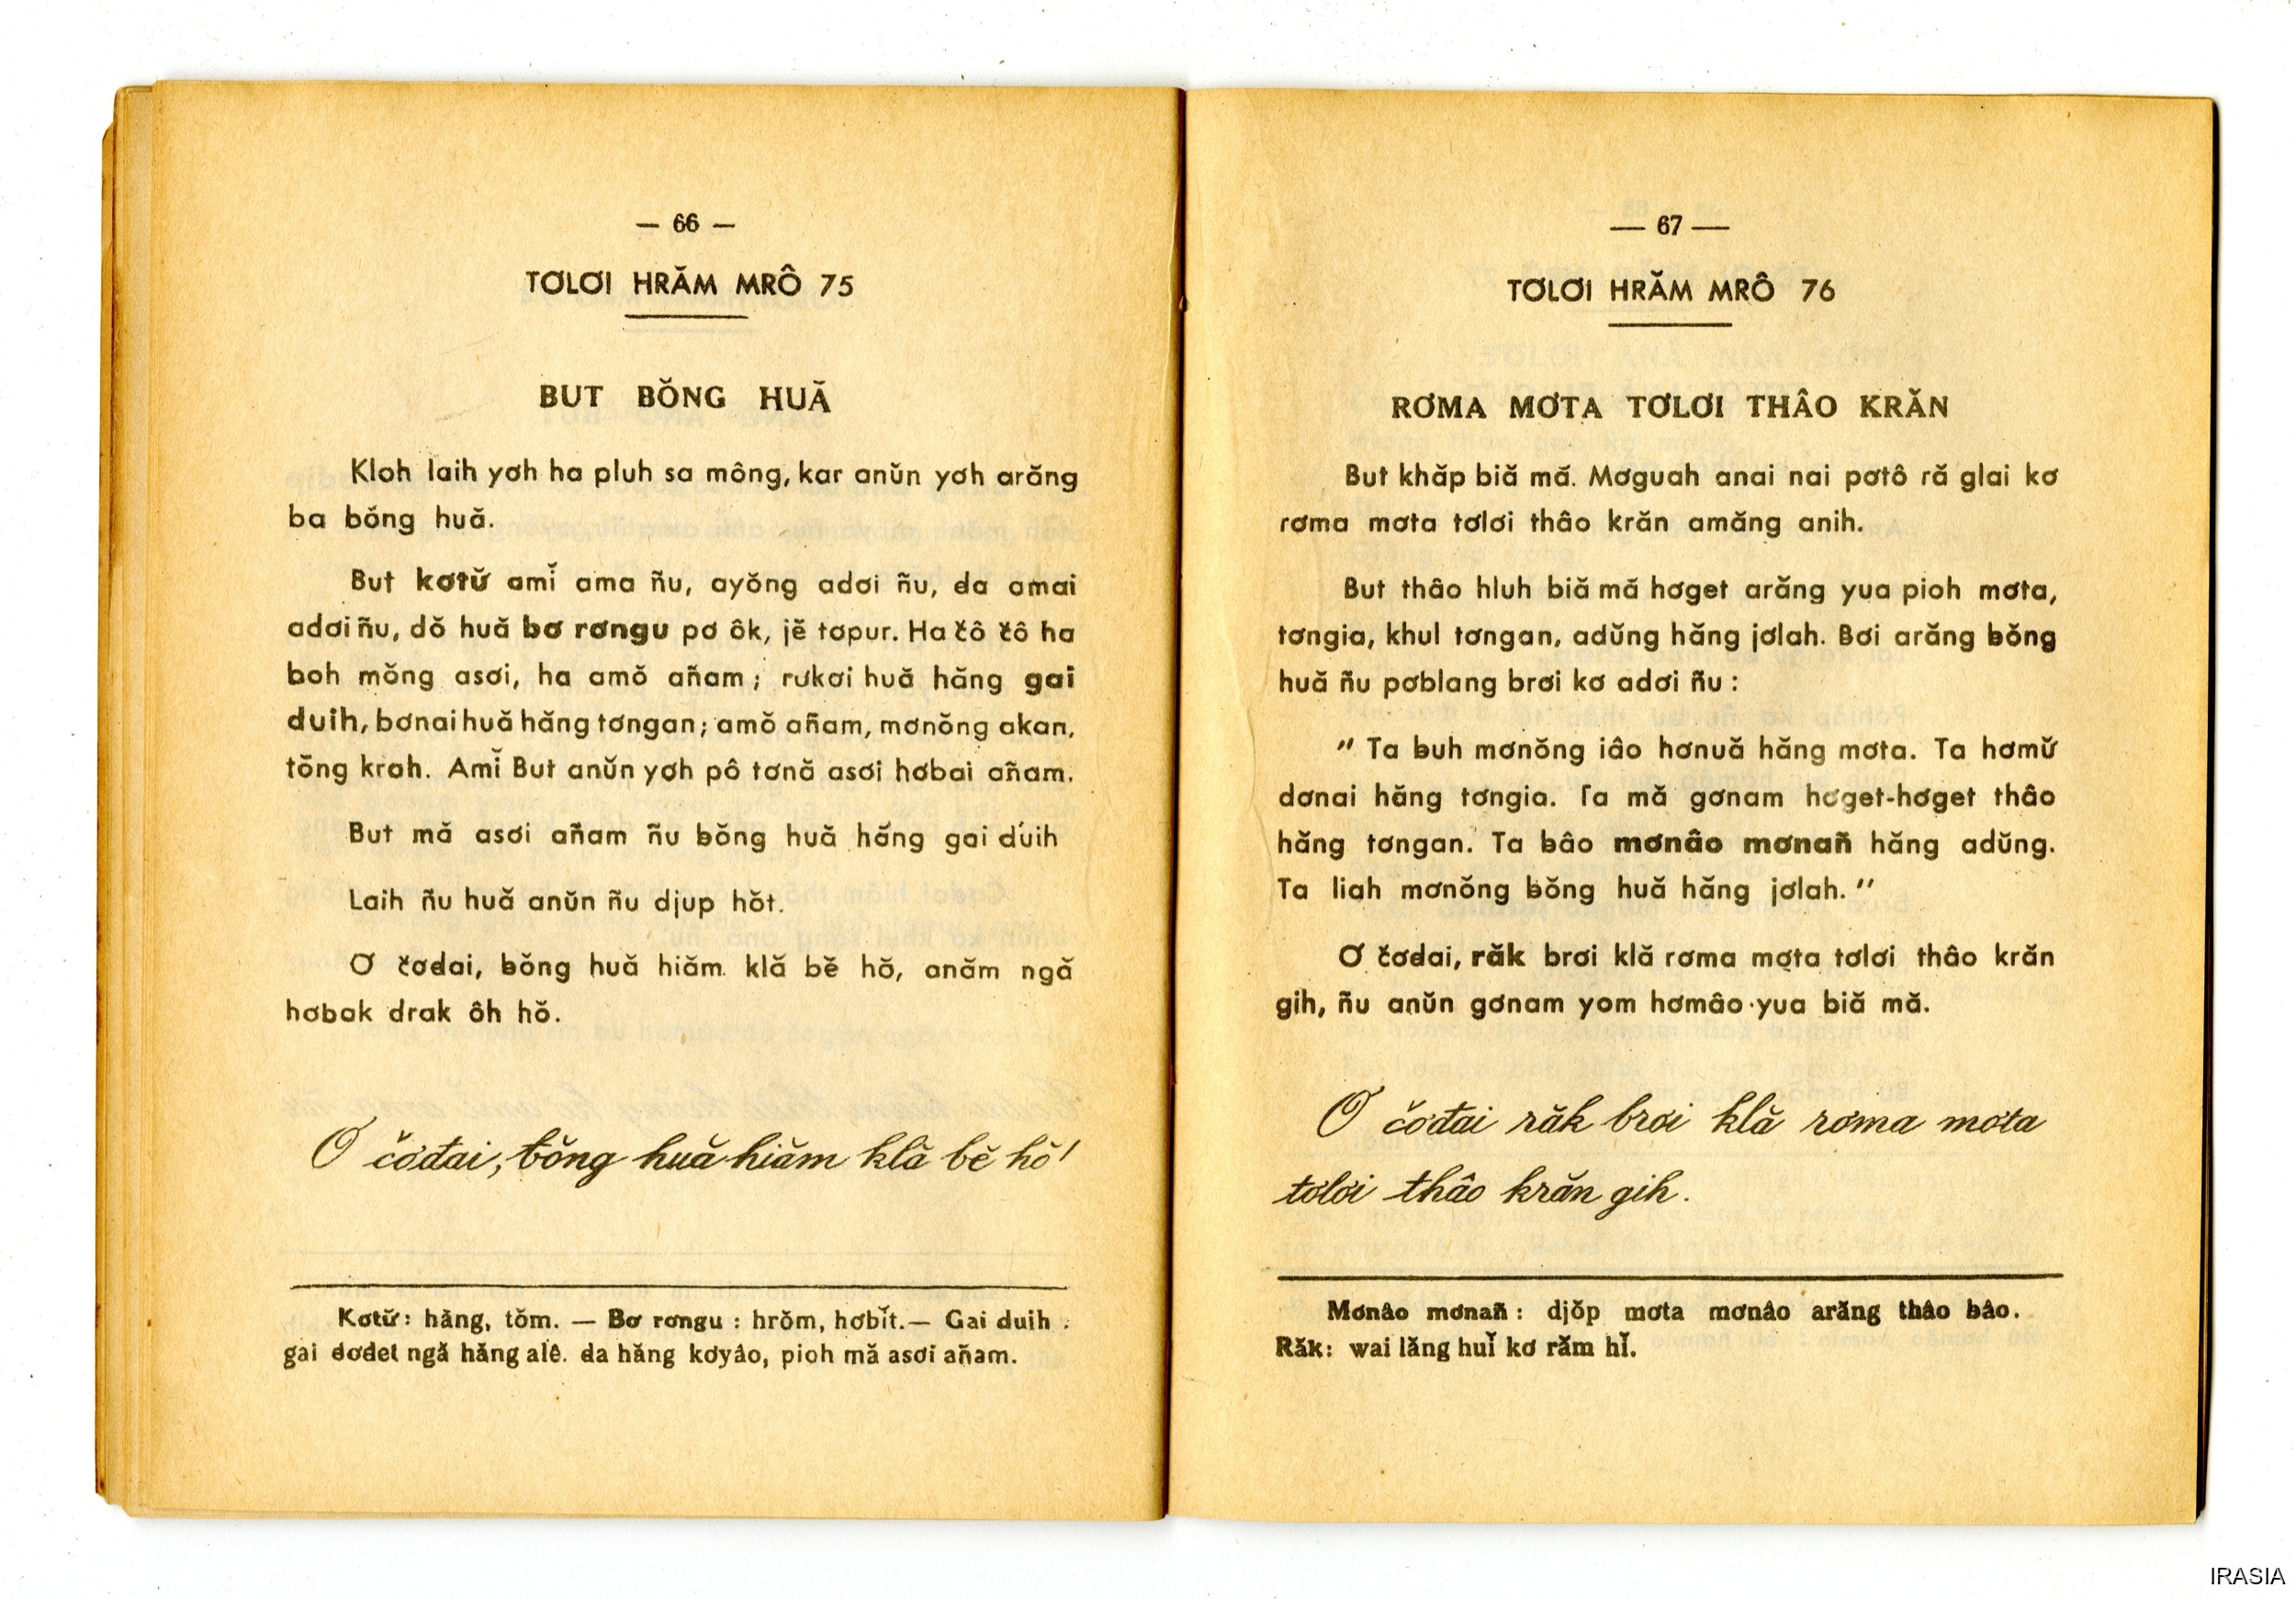 — 66 —
TƠLƠI HRĂM MRÔ 75
BUT BŎNG HUĂ
Kloh laih yơh ha pluh sa mông, kar anŭn yơh arăng
ba ƀŏng huă.
But kơtư̆ amĭ ama ñu, ayŏng adơi ñu, da amai
adơi ñu, dŏ huă bơ rơngu pơ ôk, jĕ tơpur. Ha čô čô ha
boh mŏng asơi, ha amŏ añam ; rơkơi huă hăng gai
duih, bơnai huă hăng tơngan ; amŏ añam, mơnŏng akan,
tŏng krah. Amĭ But anŭn yơh pô tơnă asơi hơbai añam.
But mă asơi añam ñu ƀŏng huă hăng gai duih
Laih ñu huă anŭn ñu djup hŏt.
Ơ čơđai, ƀŏng huă hiăm klă bĕ hŏ, anăm ngă
hơbak drak ôh hŏ.
Ơ čơđai, ƀŏng huă hiăm klă bĕ hŏ !
Kơtư̆ : hăng, tŏm. — Bơ rơngu : hrŏm, hơbĭt. — Gai duih :
gai đơđet ngă hăng alê. đa hăng kơyâo, pioh mă asơi añam.
— 67 —
TƠLƠI HRĂM MRÔ 76
RƠMA MƠTA TƠLƠI THÂO KRĂN
But khăp biă mă. Mơguah anai nai pơtô ră glai kơ
rơma mơta tơlơi thâo krăn amăng anih.
But thâo hluh biă mă hơget arăng yua pioh mơta,
tơngia, khul tơngan, adŭng hăng jơlah. Bơi arăng ƀŏng
huă ñu pơblang brơi kơ adơi ñu :
" Ta ƀuh mơnŏng iâo hơnuă hăng mơta. Ta hơmư̆
dơnai hăng tơngia. Ta mă gơnam hơget-hơget thâo
hăng tơngan. Ta ƀâo mơnâo mơnañ hăng adŭng.
Ta liah mơnŏng ƀŏng huă hăng jơlah. "
Ơ čơđai, răk brơi klă rơma mơta tơlơi thâo krăn
gih, ñu anŭn gơnam yom hơmâo yua biă mă.
Ơ čơđai răk brơi klă rơma mơta
tơlơi thâo krăn gih.
Mơnâo mơnañ : djŏp mơta mơnâo arăng thâo ƀâo.
Răk : wai lăng huĭ kơ răm hĭ.
IRASIA